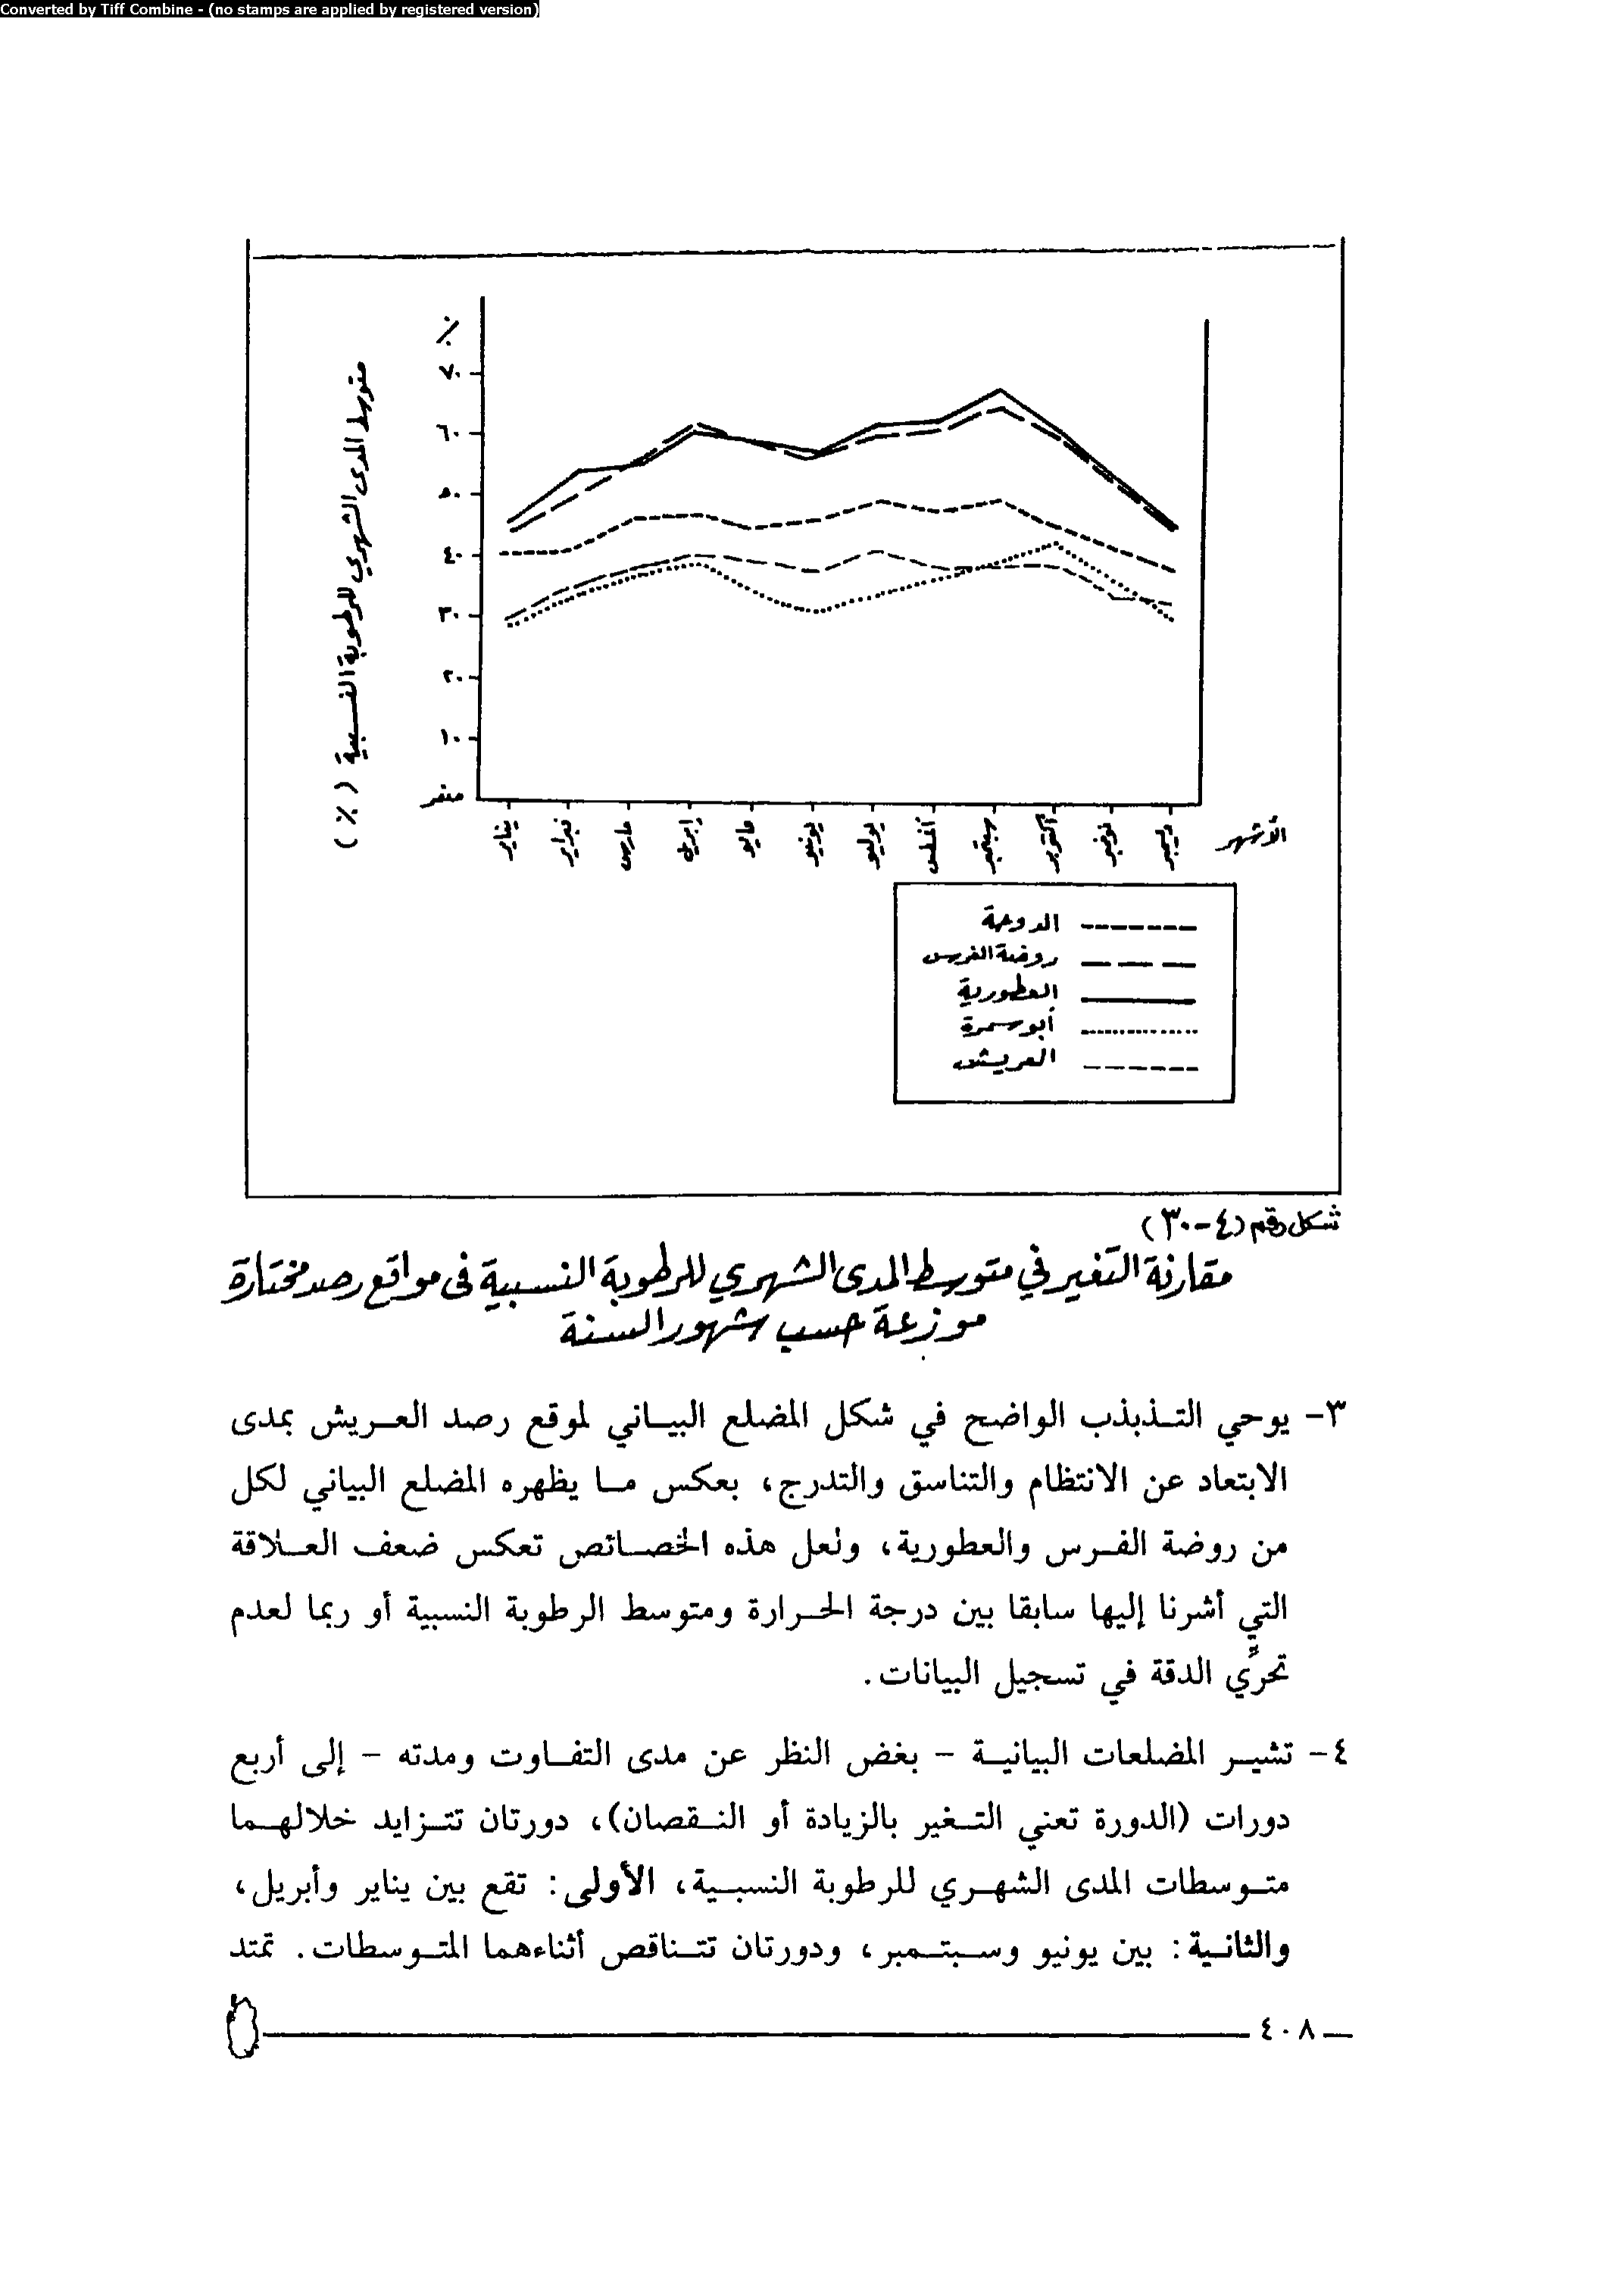 Converted by Tiff Combine - (no stamps are applied by registered version)
متوسط المدى الشهري للرطوبة النسبية (٪)
٪
٧٠
٦٠
٥٠
٤٠
٣٠
٢٠
١٠
صفر
يناير فبراير مارس إبريل مايو يونيو يوليو أغسطس سبتمبر أكتوبر نوفمبر ديسمبر الأشهر
الدوحة
روضة الفرس
العطورية
أبو سمرة
العريش
شكل رقم (٤-٣٠)
مقارنة التغير في متوسط المدى الشهري للرطوبة النسبية فى مواقع رصد مختارة
موزعة حسب شهور السنة
٣- يوحي التذبذب الواضح في شكل المضلع البياني لموقع رصد العريش بمدى
الابتعاد عن الانتظام والتناسق والتدرج، بعكس ما يظهره المضلع البياني لكل
من روضة الفرس والعطورية، ولعل هذه الخصائص تعكس ضعف العلاقة
التي أشرنا إليها سابقا بين درجة الحرارة ومتوسط الرطوبة النسبية أو ربما لعدم
تحرِّي الدقة في تسجيل البيانات.
٤- تشير المضلعات البيانية - بغض النظر عن مدى التفاوت ومدته - إلى أربع
دورات (الدورة تعني التغير بالزيادة أو النقصان)، دورتان تتزايد خلالهما
متوسطات المدى الشهري للرطوبة النسبية، الأولى: تقع بين يناير وأبريل،
والثانية: بين يونيو وسبتمبر، ودورتان تتناقص أثناءهما المتوسطات. تمتد
٤٠٨